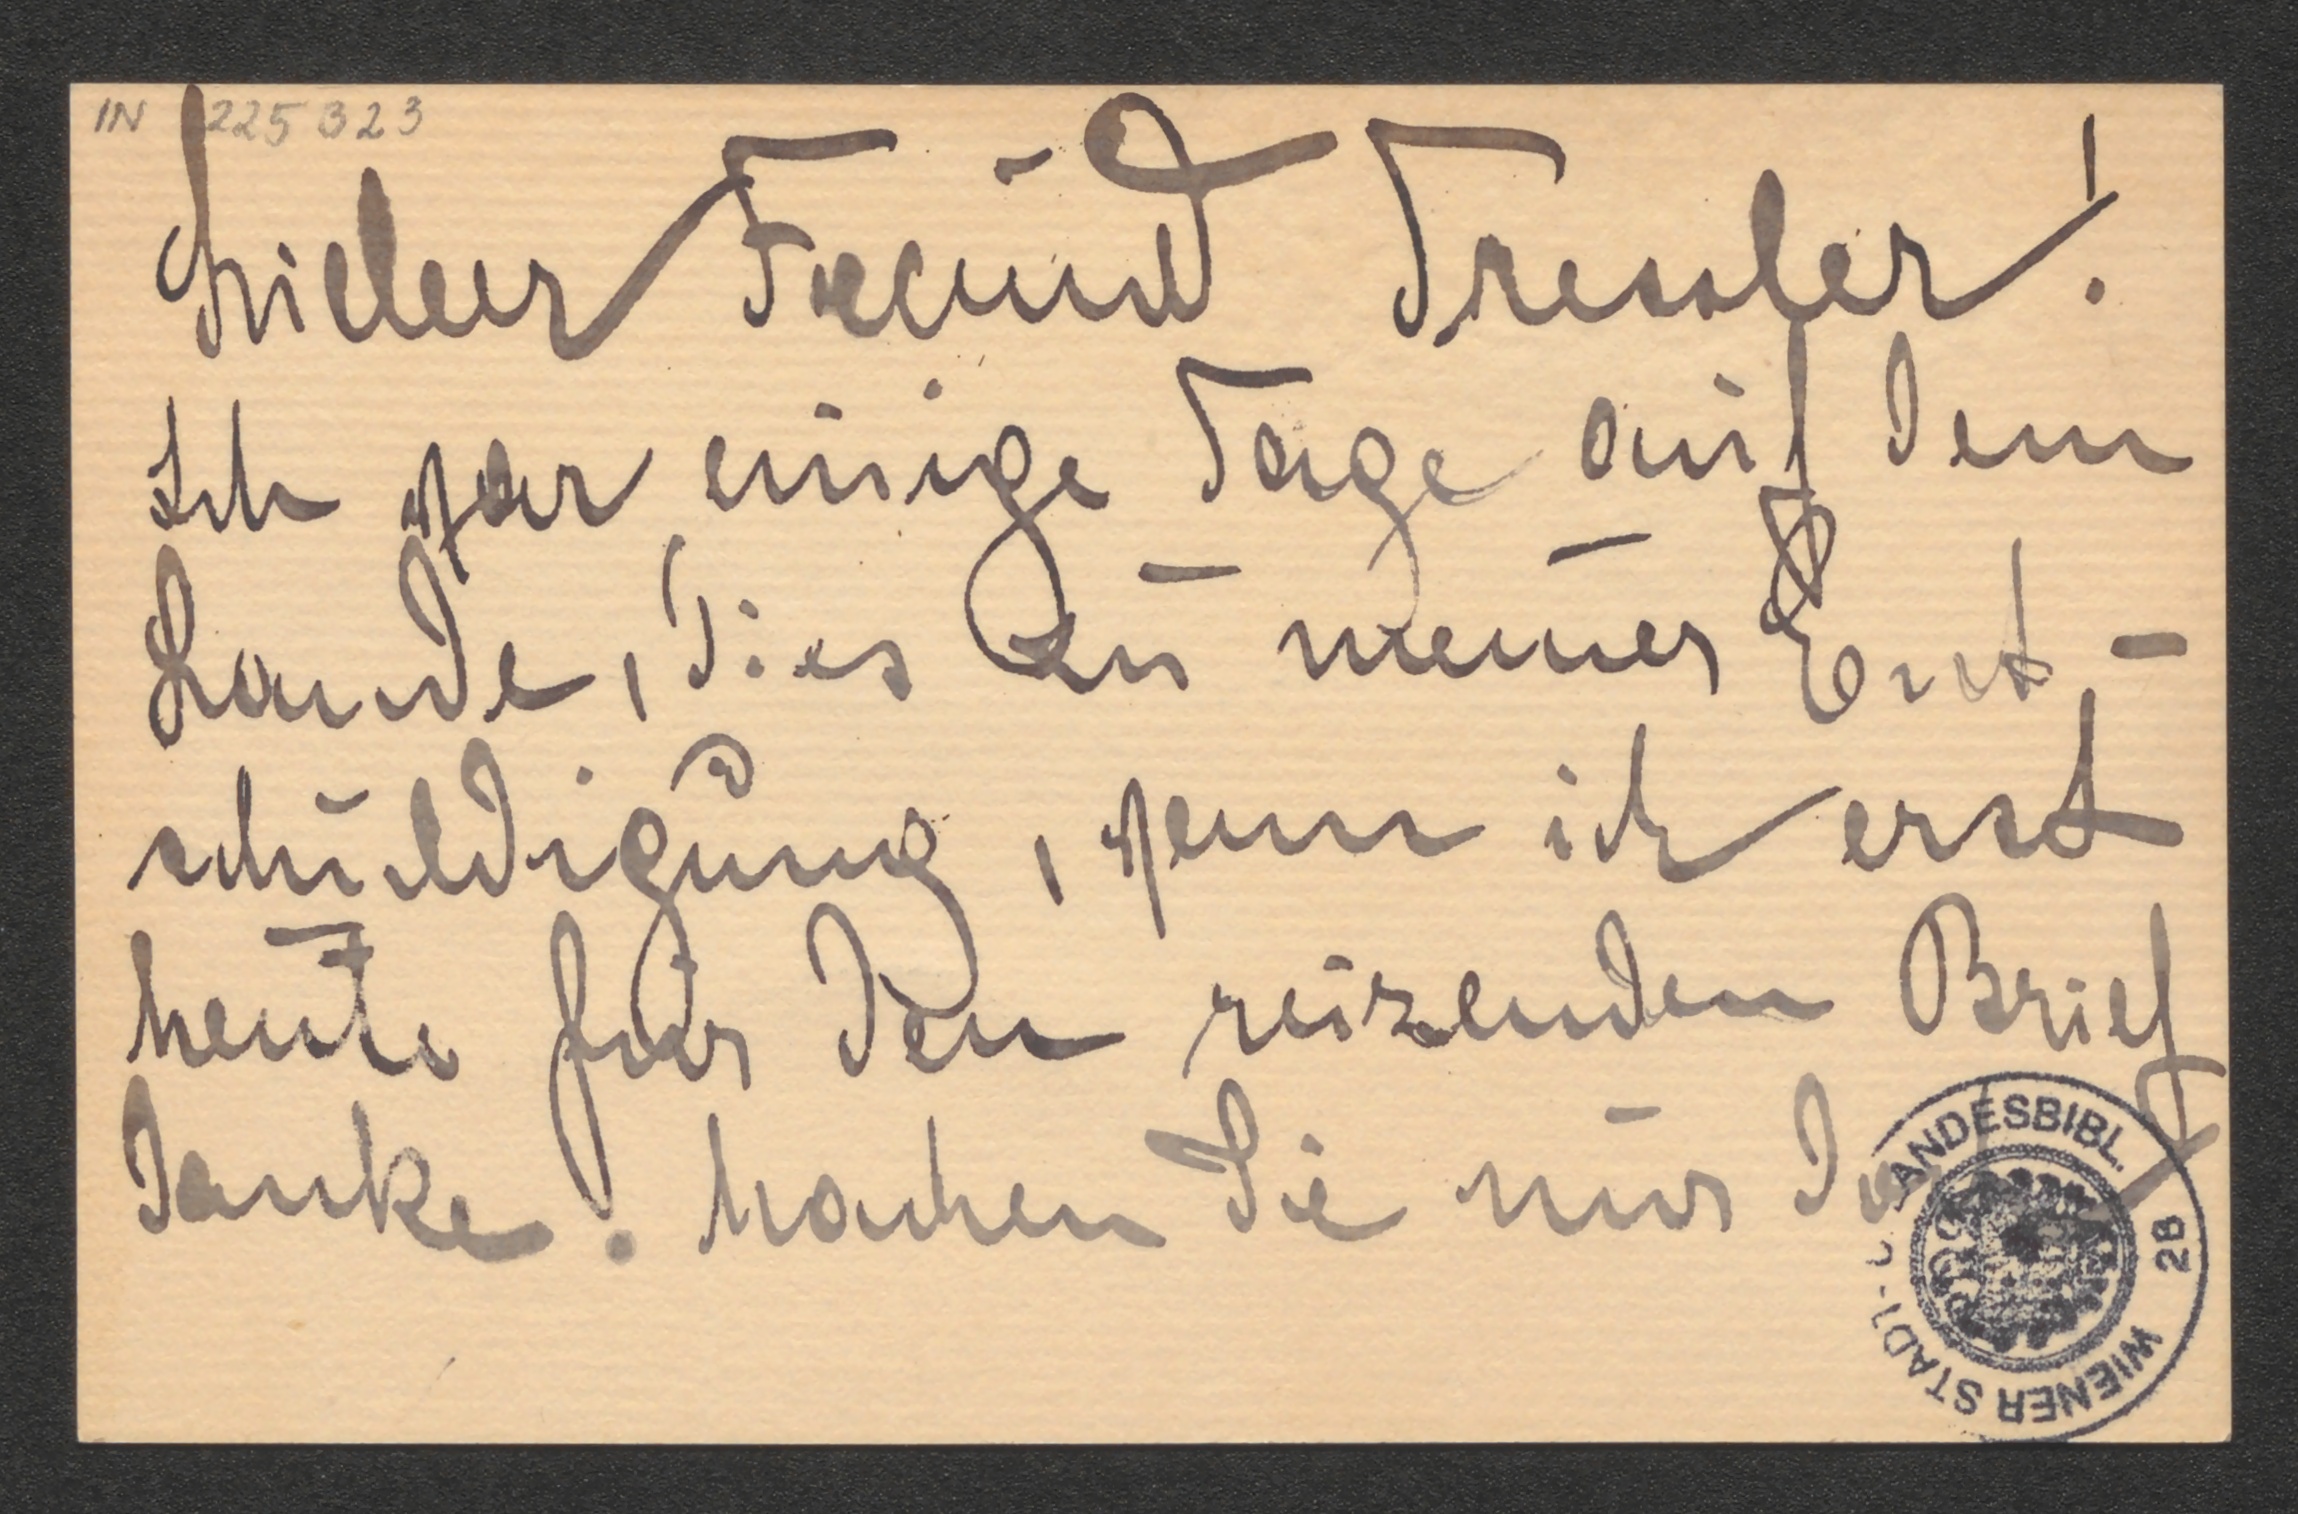 IN 225323
Lieber Freund Tressler!
Ich war einige Tage auf dem
Lande, dies zu meiner Ent-
schuldigung, wenn ich erst
heute für den reizenden Brief
danke. Machen Sie nur
WIENER STADT- U. LANDESBIBL. 28